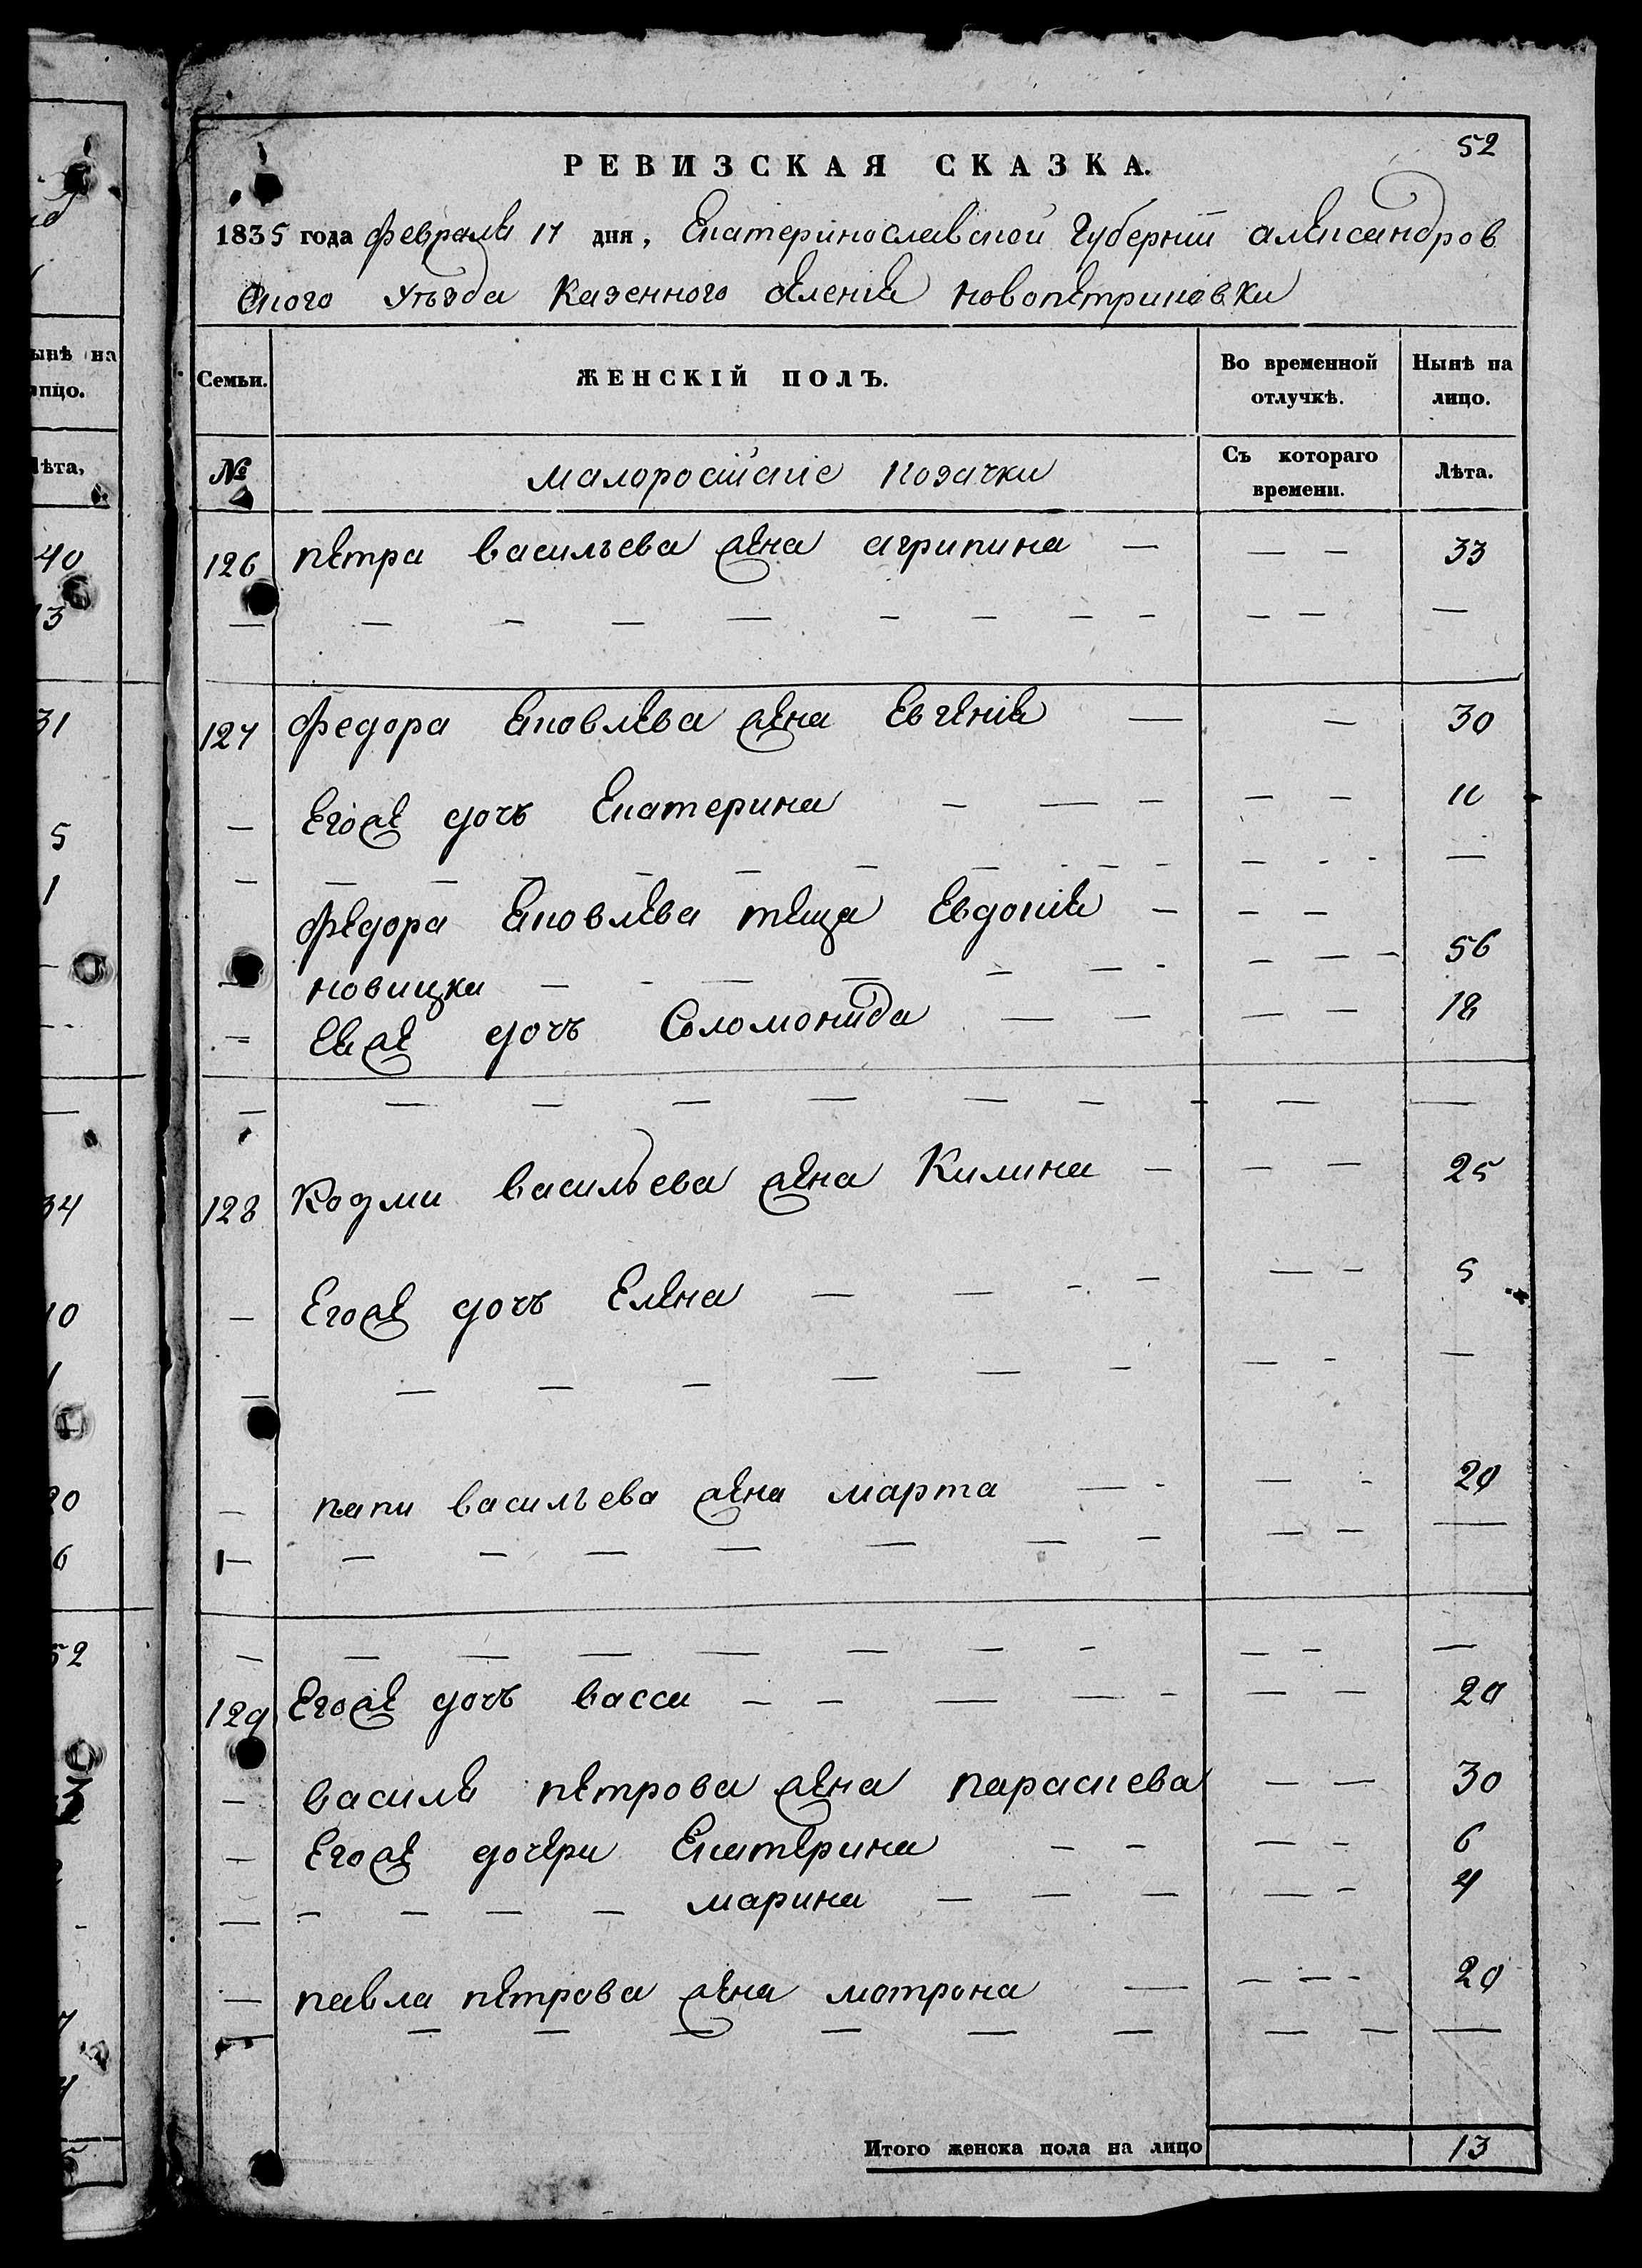 52
РЕВИЗСКАЯ СКАЗКА.
1835 года февраля 17 дня, Екатеринославской Губернии александров
ского Уѣзда Казенного селения новопетриковки
Семьи. ЖЕНСКІЙ ПОЛЪ. Во временной отлучкѣ. Нынѣ на лицо.
№ малоросийские козачки Съ котораго времени. Лѣта.
126 петра васильева жена агрипина — — — 33
127 федора Яковлева жена Евгения — — 30
— Егоже дочь Екатерина — — — — — 11
федора Яковлева теща Евдокия — — —
новицка — — — — — — 56
— Еяже дочь Соломонида — — — — 18
128 Козми васильева жена Килина — — — 25
— Егоже дочь Елена — — — — — — 5
— васильева жена марта — — — — 20
129 Егоже дочь васса — — — — — — — 20
— василя петрова жена параскева — — 30
— Егоже дочери Екатерина — — — — 6
— — — — — марина — — — — — 4
— павла петрова жена мотрона — — — — 20
Итого женска пола на лицо 13
ынѣ на
лицо.
Лѣта,
40
13
31
5
1
34
10
20
6
52